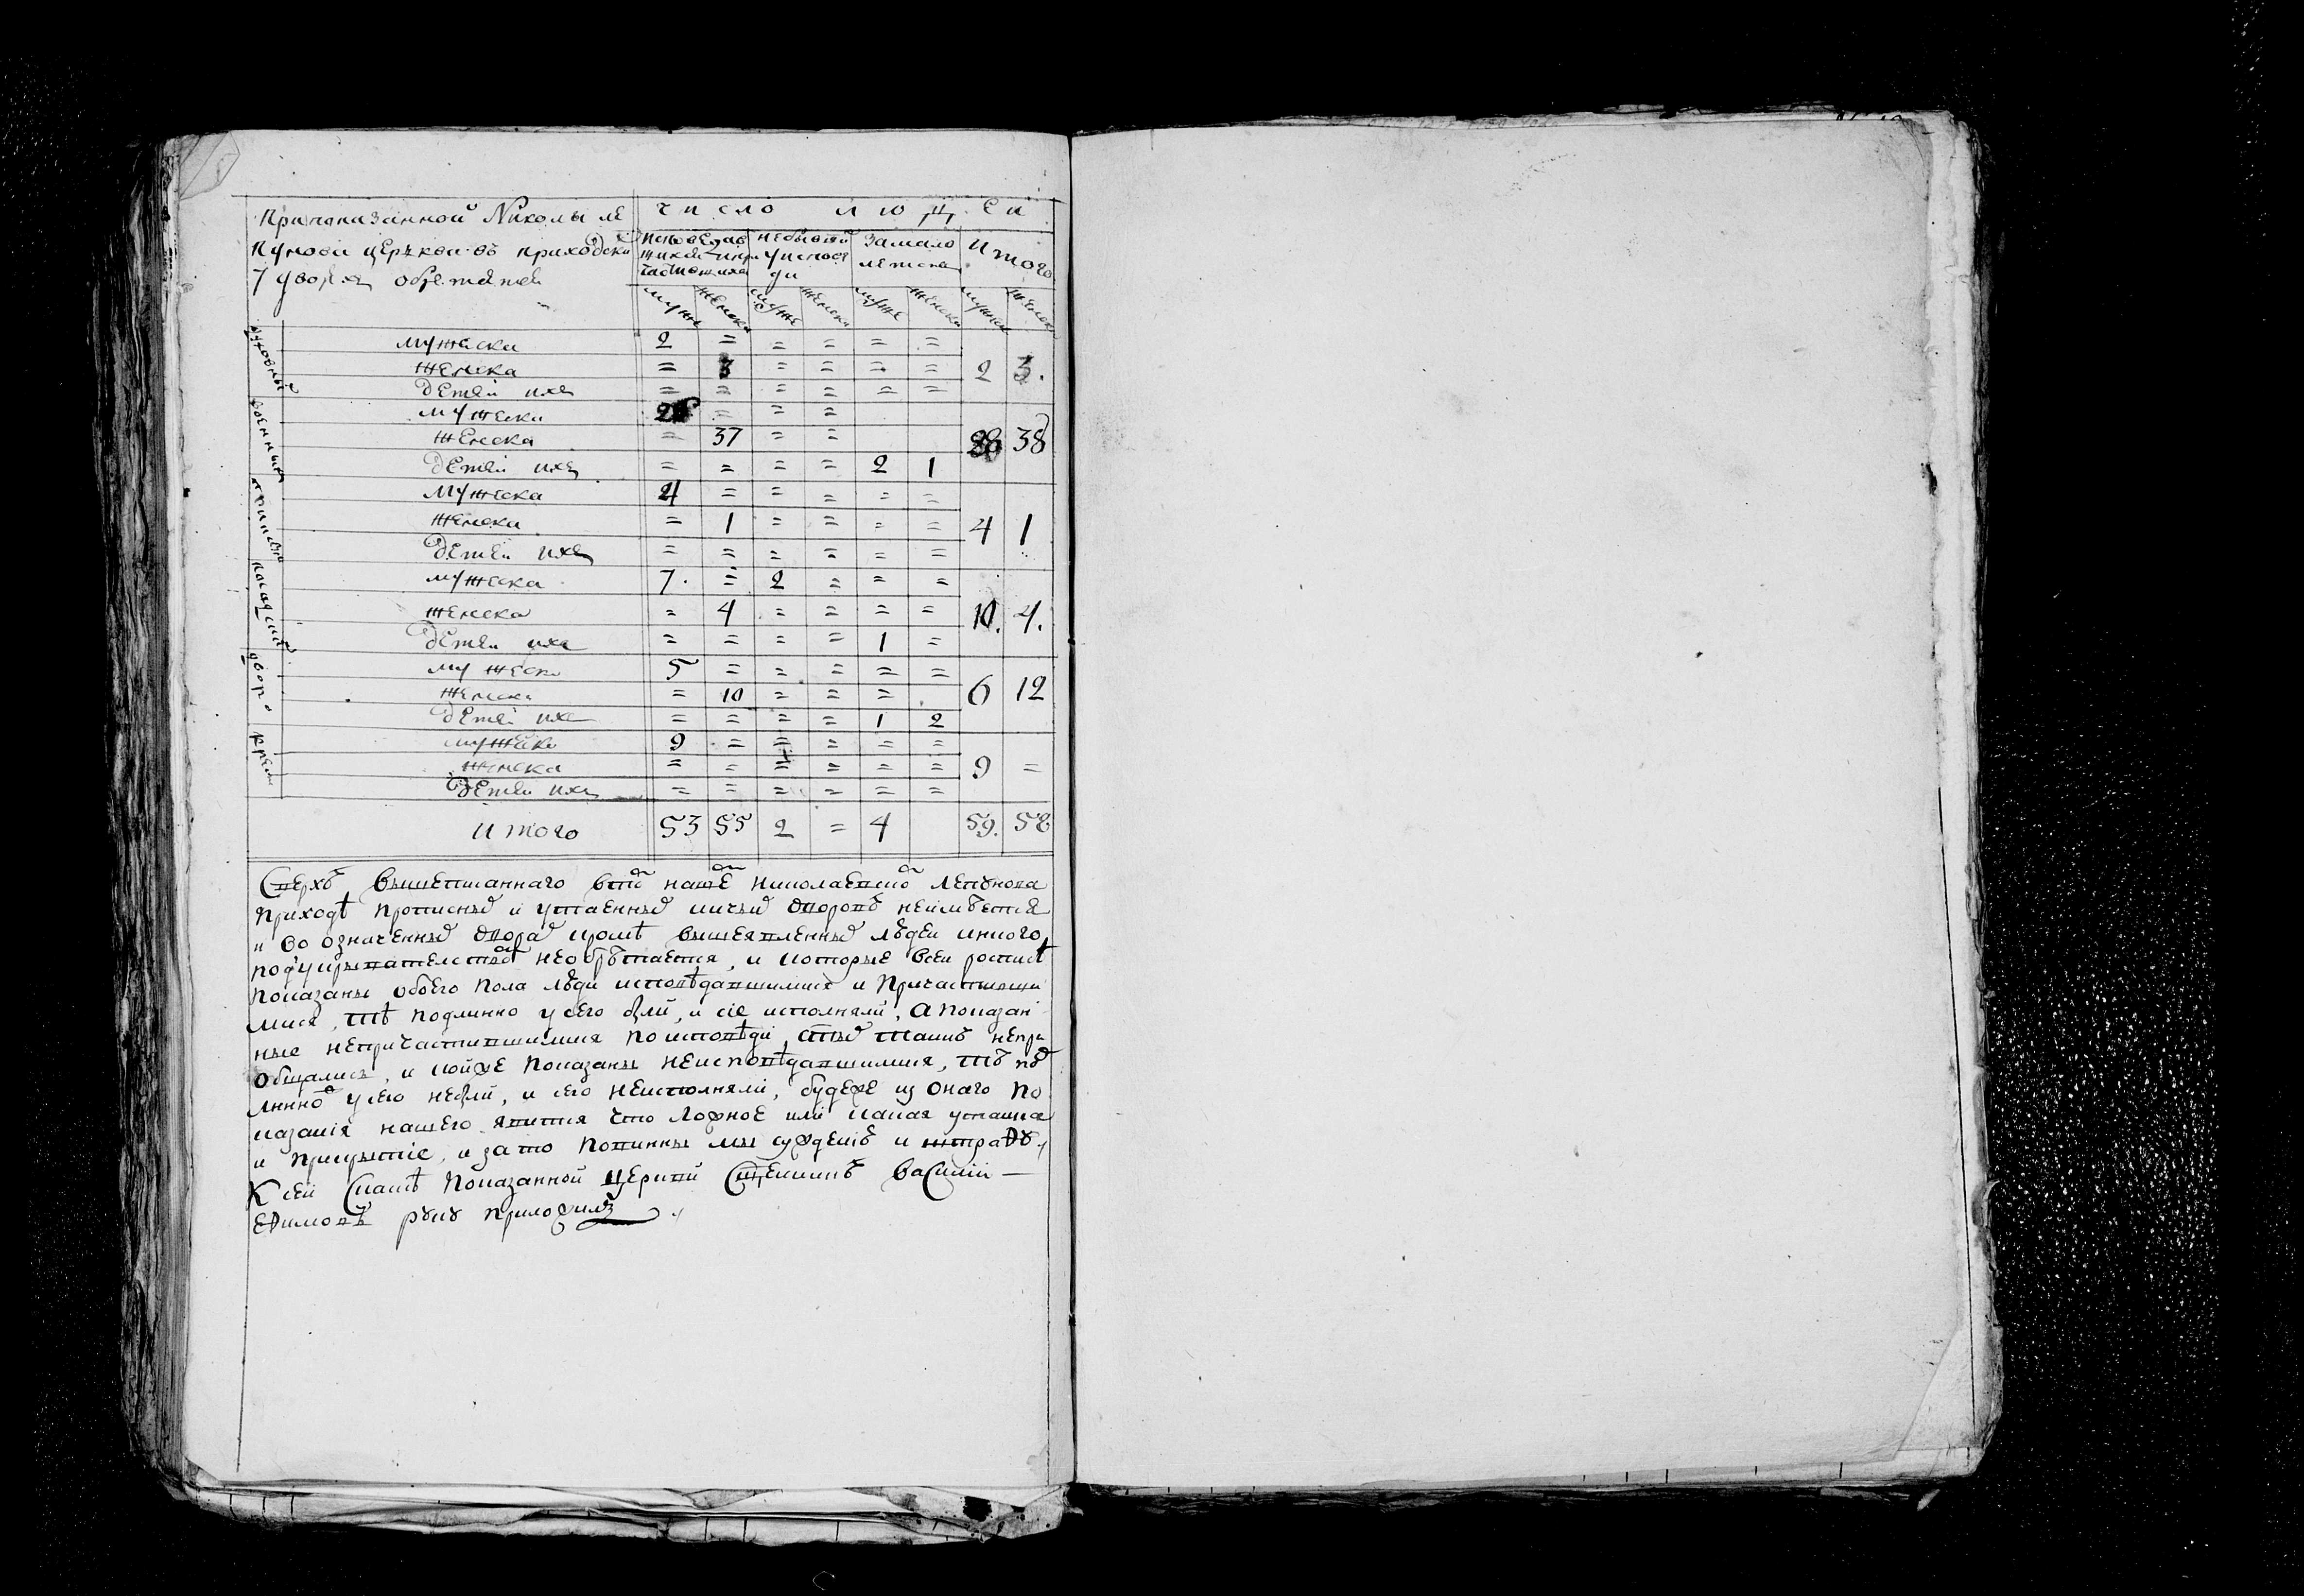 при показанной Николы ле
пунова церькви въ приходски
7 дворах обретател
число людеи
исповедав
шихся и при
частившихся
небывши
у испове
ди
за мало
летств
итого
муже женска муже женска муже женска мужеск женска
духовныя
мужеска 2 = = = = =
женска = 3 = = = = 2 3.
детеи ихъ = = = = = =
военныя
мужеска = = =
женска = 37 = = 38
детеи ихъ = = = = 2 1
мужеска 4 = = = = =
женска = 1 = = = = 4 1
детеи ихъ = = = = = =
посацкия
мужеска 7. = 2 = = =
женска = 4 = = = = 10. 4.
детеи ихъ = = = = 1 =
двор
мужеск 5 = = = = =
женска = 10 = = = 6 12
детеи ихъ = = = = 1 2
крест
мужеска 9 = = = = =
женска = = = = = = 9 =
детеи ихъ = = = = = =
итого 53 55 2 = 4 59. 58
Сверхъ вышеписаннаго в той нашей николаевской лепунова
приходѣ прописных и утаенных ничьих дворовъ неимѣется
и во означенных дворах кромѣ вышеявленных людеи иного
подукрывательством необрѣтается, и которые всеи росписѣ
показаны обоего пола люди исповѣдавшимися и причастивши
мися, тѣ подлинно у сего были, и сіе исполняли, а показан
ные непричастившимися по исповѣди, такъ непри
общались, и коихже показаны неисповѣдавшимися, тѣ под
линно у сего небыли, и сего неисполняли, будеже из онаго по
казанія нашего явится что ложное или какая утаика
и прикрытіе, и за то повинны мы сужденію и штрафу
К сей сказкѣ показанной церкви Священникъ Василій
Ефимовъ руку приложилъ